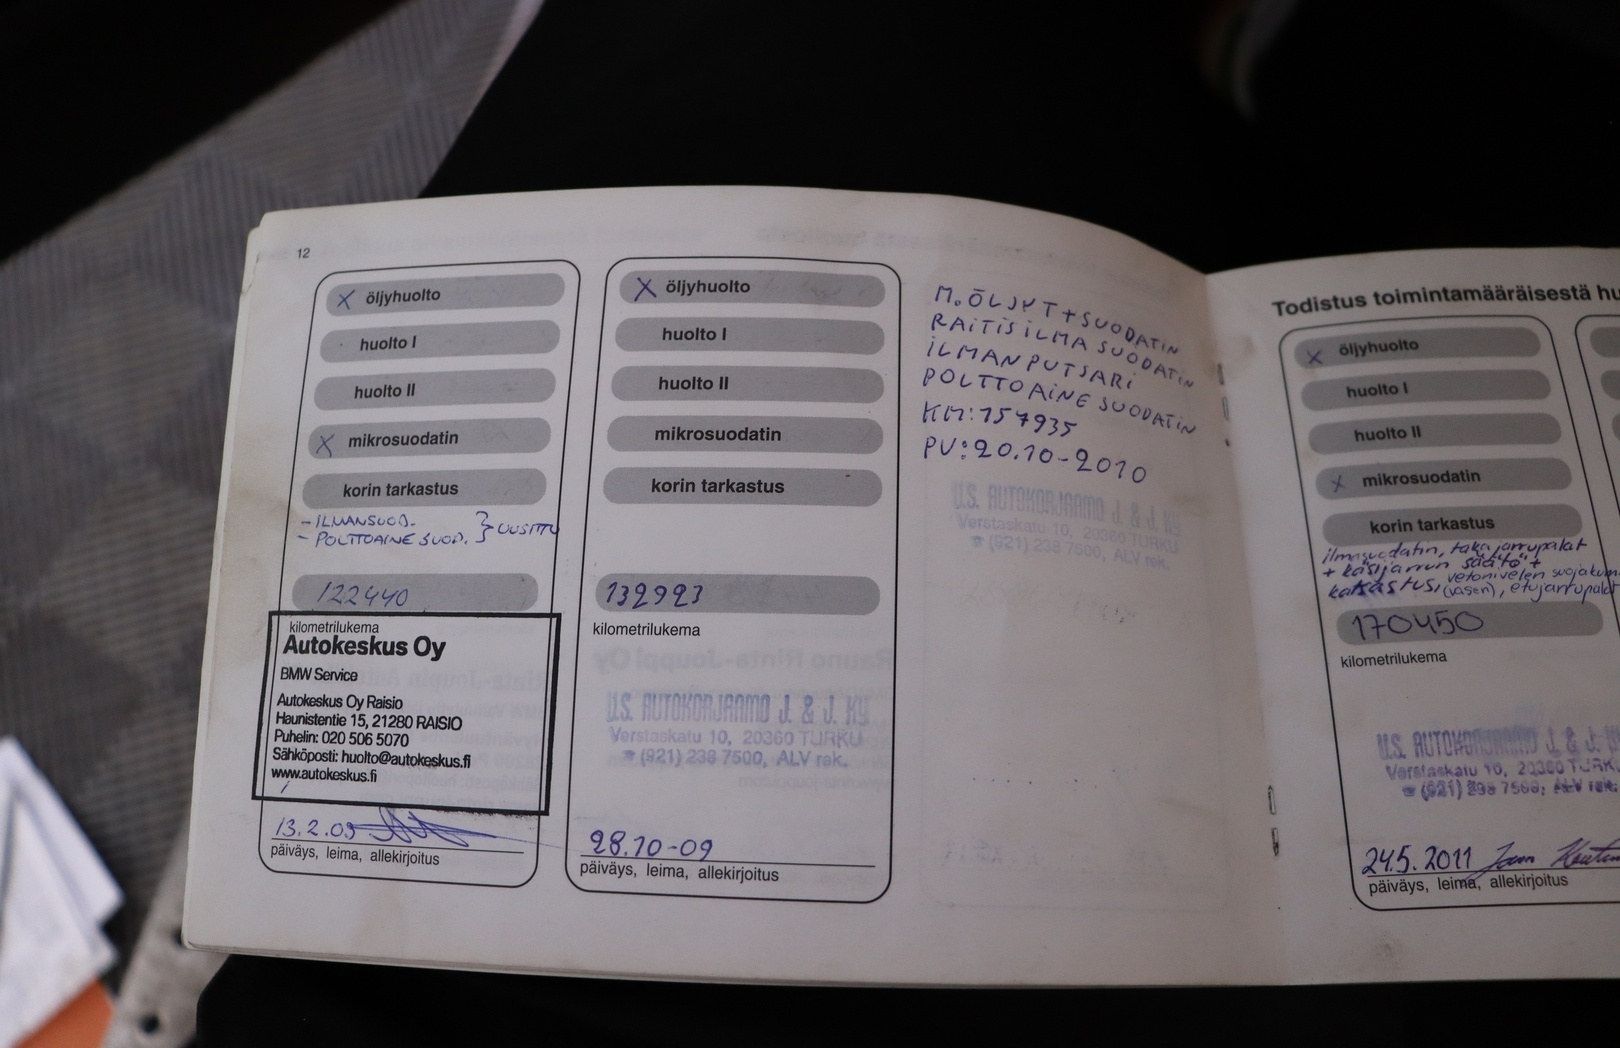 12
X öljyhuolto
huolto I
huolto II
X mikrosuodatin
korin tarkastus
- ILMANSUOD.
- POLTTOAINE SUOD. } UUSITTU
122440
kilometrilukema
Autokeskus Oy
BMW Service
Autokeskus Oy Raisio
Haunistentie 15, 21280 RAISIO
Puhelin: 020 506 5070
Sähköposti: huolto@autokeskus.fi
www.autokeskus.fi
13.2.09
päiväys, leima, allekirjoitus
X öljyhuolto
huolto I
huolto II
mikrosuodatin
korin tarkastus
132923
kilometrilukema
U.S. AUTOKORJAAMO J. & J. KY
Verstaskatu 10, 20360 TURKU
☎ (921) 238 7500, ALV rek.
28.10-09
päiväys, leima, allekirjoitus
M. ÖLJYT + SUODATIN
RAITISILMA SUODATIN
ILMANPUTSARI
POLTTOAINE SUODATIN
KM: 157935
PV: 20.10-2010
U.S. AUTOKORJAAMO J. & J. KY
Verstaskatu 10, 20360 TURKU
☎ (921) 238 7500, ALV rek.
Todistus toimintamääräisestä hu
X öljyhuolto
huolto I
huolto II
X mikrosuodatin
korin tarkastus
ilmasuodatin, taka jarrupalat
+ käsijarrun säätö +
katsastus, vetonivelen suojakum
(vasen), etujarrupalat
170450
kilometrilukema
U.S. AUTOKORJAAMO J. & J. K
Verstaskatu 10, 20360 TURK
☎ (921) 238 7500, ALV rek.
24.5.2011
päiväys, leima, allekirjoitus